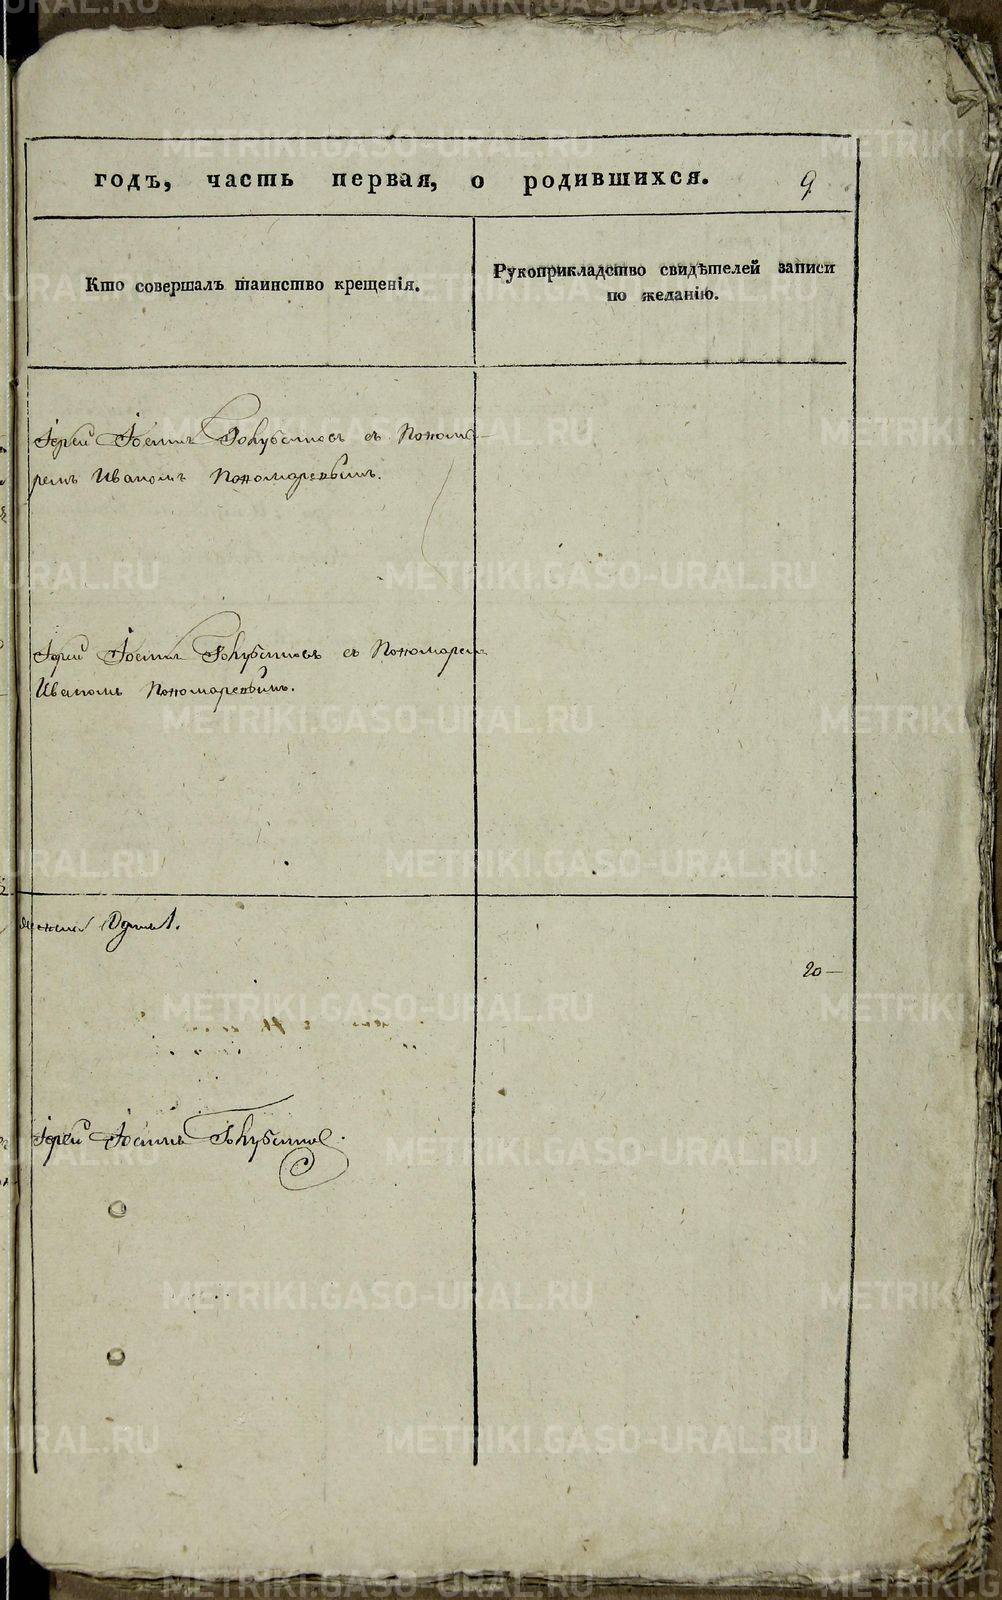 годъ, часть первая, о родившихся. 9
Кто совершалъ таинство крещенія.
Рукоприкладство свидѣтелей записи
по желанію.
Іерей Іоаннъ Голубятниковъ съ Понома-
ремъ Иваномъ Пономаревымъ.
Іерей Іоаннъ Голубятниковъ съ Пономаремъ
Иваномъ Пономаревымъ.
20—
Іерей Іоаннъ
METRIKI.GASO-URAL.RU